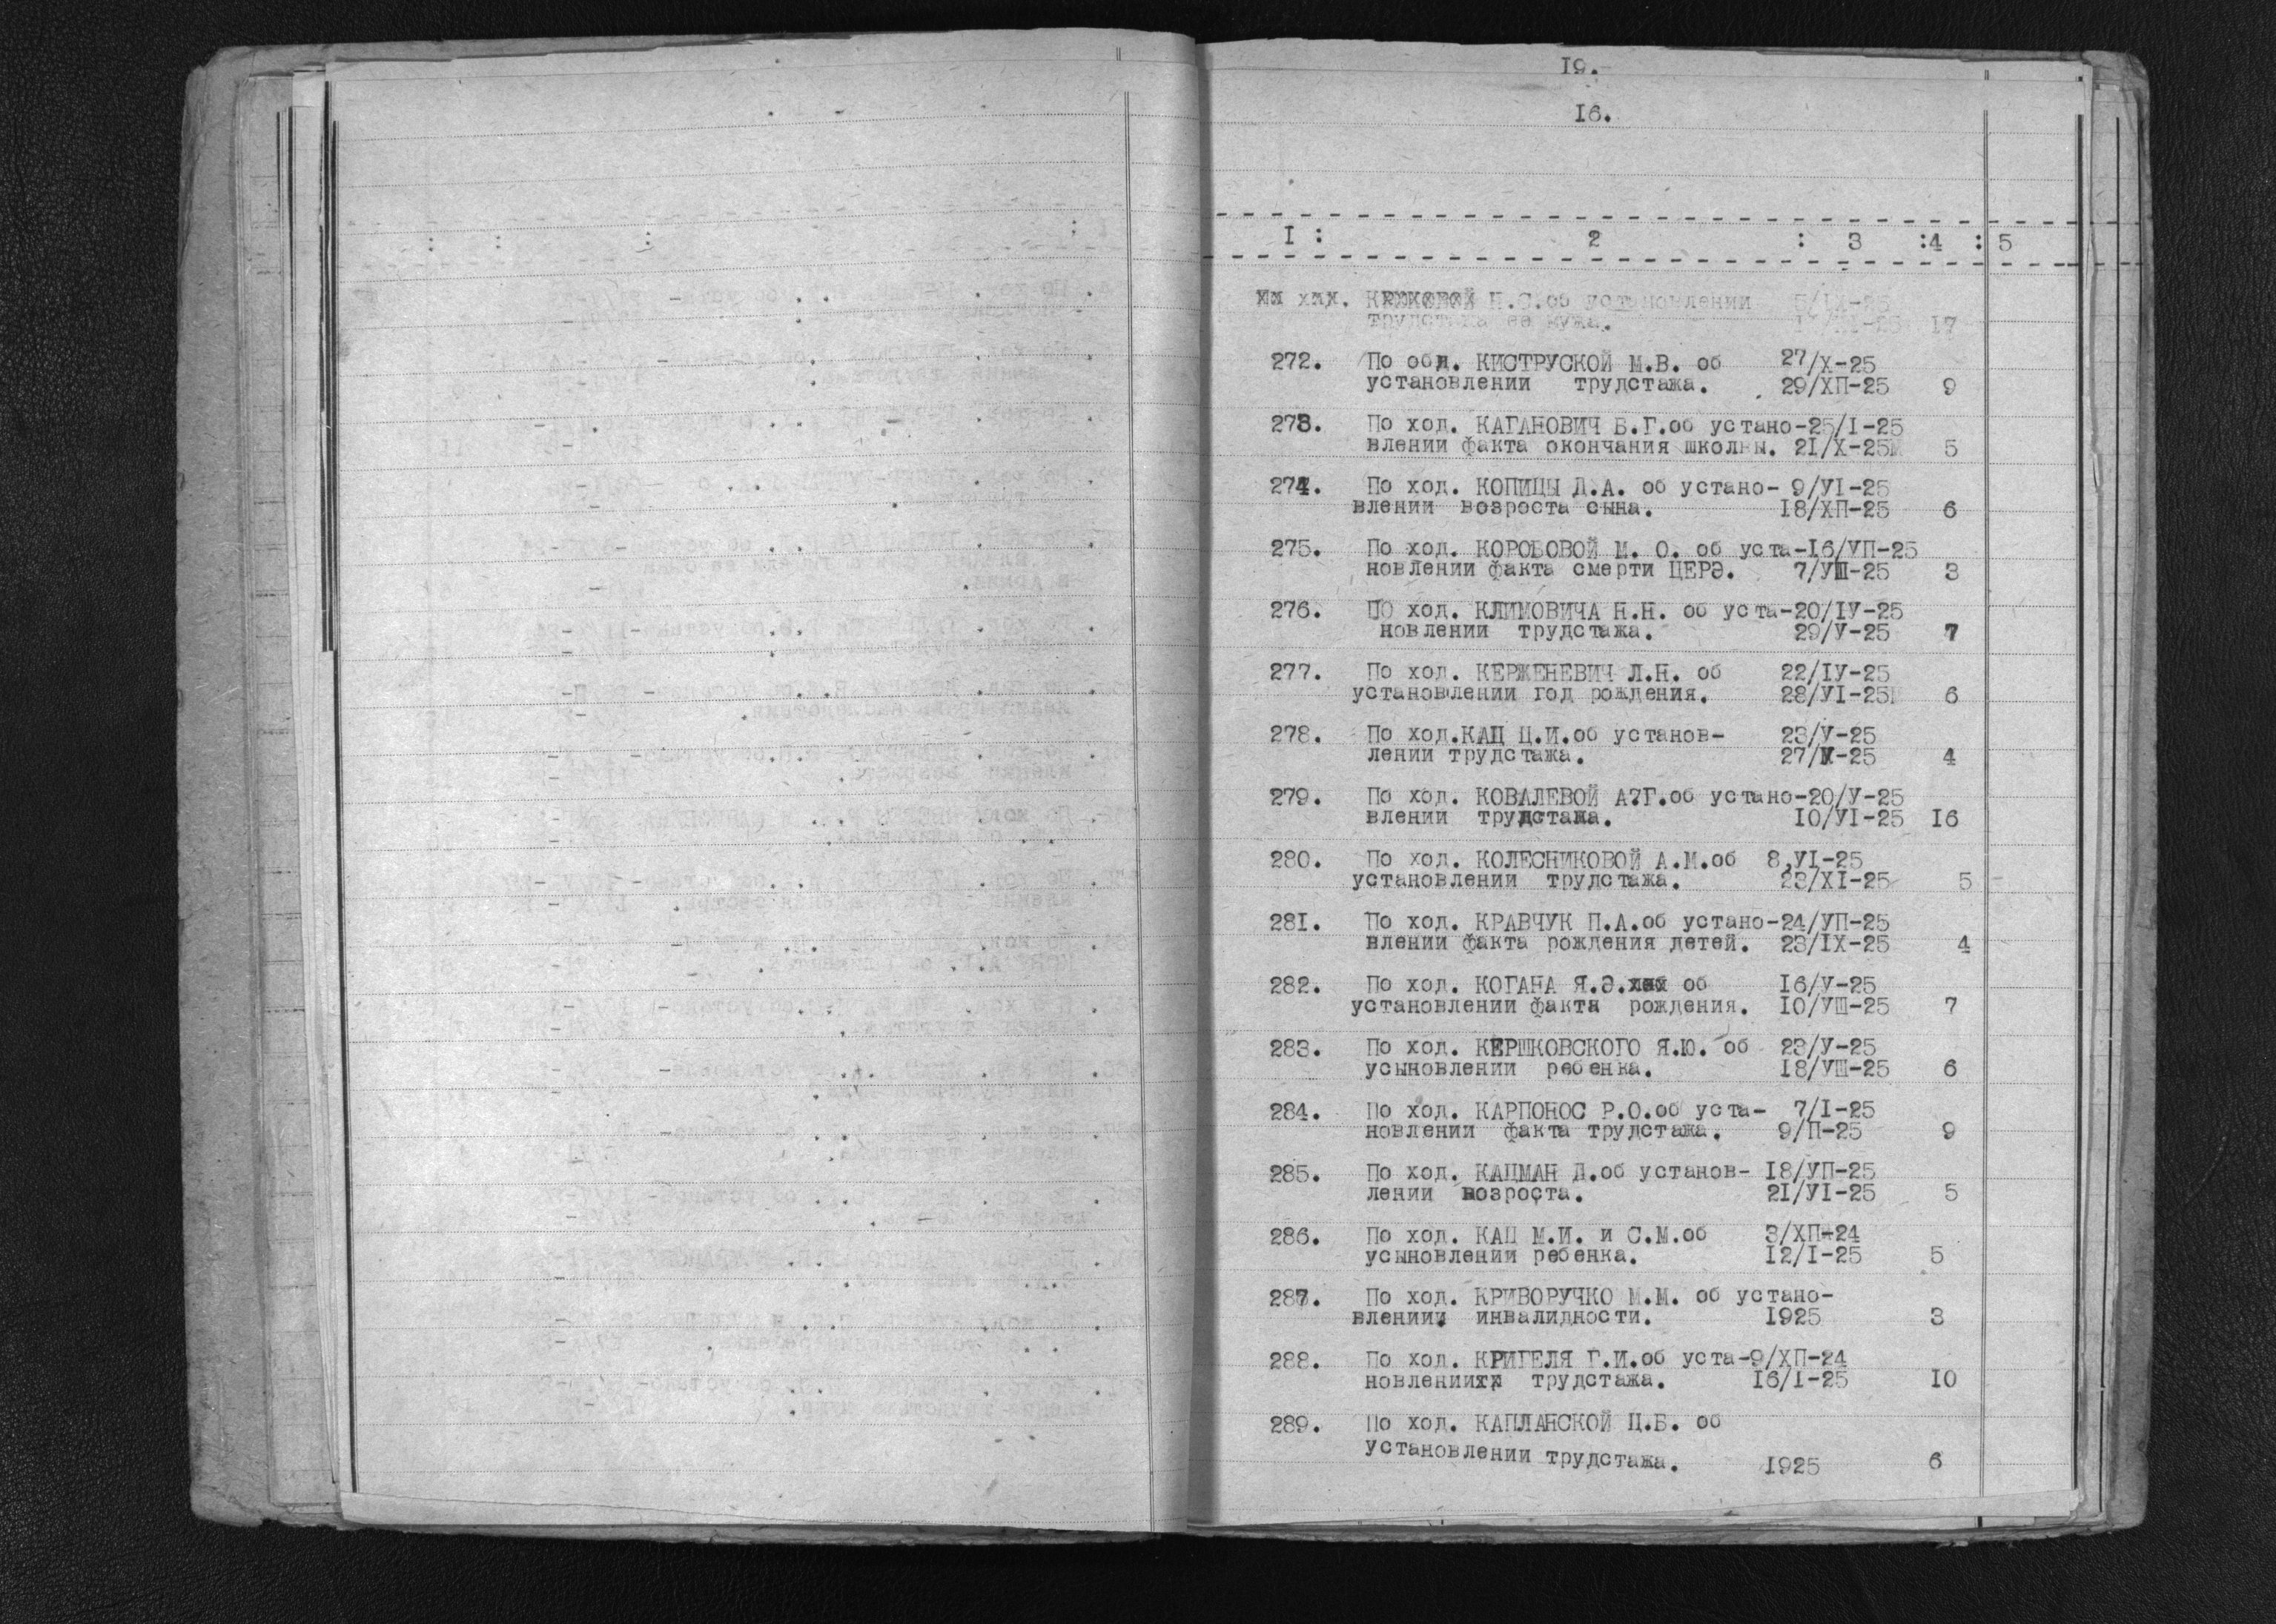 19.
16.
I : 2 : 3 :4 : 5
об установлении 5/IX-25
трудстажа ее мужа. 17
272. По обд. КИСТРУСКОЙ М.В. об 27/X-25
установлении трудстажа. 29/ХП-25 9
273. По ход. КАГАНОВИЧ Б.Г.об устано-25/I-25
влении факта окончания школьы. 21/X-25 5
274. По ход. КОПИЦЫ Д.А. об устано- 9/УI-25
влении возроста сына. 18/ХП-25 6
275. По ход. КОРОБОВОЙ М. О. об уста-16/УП-25
новлении факта смерти ЦЕРЭ. 7/УШ-25 3
276. ПО ход. КЛИМОВИЧА Н.Н. об уста-20/IУ-25
новлении трудстажа. 29/У-25 7
277. По ход. КЕРЖЕНЕВИЧ Л.Н. об 22/IУ-25
установлении год рождения. 28/УI-25 6
278. По ход.КАЦ Ц.И.об установ- 23/У-25
лении трудстажа. 27/X-25 4
279. По ход. КОВАЛЕВОЙ А?Г.об устано-20/У-25
влении трудстажа. 10/УI-25 16
280. По ход. КОЛЕСНИКОВОЙ А.М.об 8,УI-25
установлении трудстажа. 23/XI-25 5
281. По ход. КРАВЧУК П.А.об устано-24/УП-25
влении факта рождения детей. 23/IX-25 4
282. По ход. КОГАНА Я.Э. об 16/У-25
установлении факта рождения. 10/УШ-25 7
283. По ход. КЕРШКОВСКОГО Я.Ю. об 23/У-25
усыновлении ребенка. 18/УШ-25 6
284. По ход. КАРПОНОС Р.О.об уста- 7/I-25
новлении факта трудстажа. 9/П-25 9
285. По ход. КАЦМАН Д.об установ- 18/УП-25
лении возроста. 21/УI-25 5
286. По ход. КАЦ М.И. и С.М.об 3/ХП-24
усыновлении ребенка. 12/I-25 5
287. По ход. КРИВОРУЧКО М.М. об устано-
влениии инвалидности. 1925 3
288. По ход. КРИГЕЛЯ Г.И.об уста-9/ХП-24
новлении трудстажа. 16/I-25 10
289. По ход. КАПЛАНСКОЙ Ц.Б. об
установлении трудстажа. 1925 6